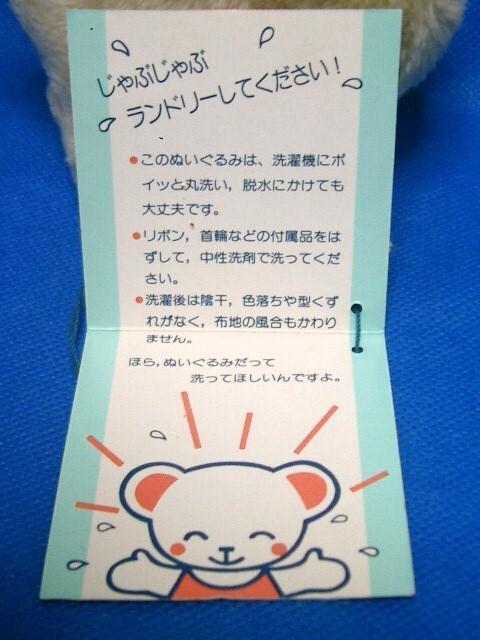 じゃぶじゃぶ
ランドリーしてください！
●このぬいぐるみは、洗濯機にポ
イッと丸洗い，脱水にかけても
大丈夫です。
●リボン，首輪などの付属品をは
ずして，中性洗剤で洗ってくだ
さい。
●洗濯後は陰干，色落ちや型くず
れがなく，布地の風合もかわり
ません。
ほら，ぬいぐるみだって
洗ってほしいんですよ。